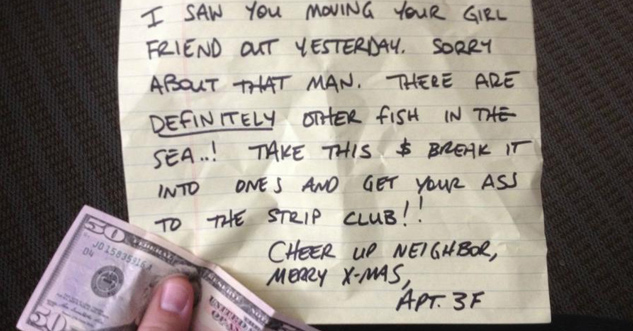 I SAW YOU MOVING YOUR GIRL
FRIEND OUT YESTERDAY. SORRY
ABOUT THAT MAN. THERE ARE
DEFINITELY OTHER FISH IN THE
SEA..! TAKE THIS $ BREAK IT
INTO ONES AND GET YOUR ASS
TO THE STRIP CLUB!!
CHEER UP NEIGHBOR,
MERRY X-MAS,
APT. 3F
50
FEDERAL
50